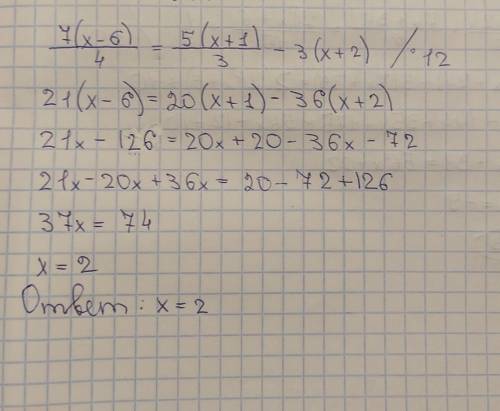 7(x-6)/4 = 5(x+1)/3 - 3(x+2) /·12
21(x-6)=20(x+1)-36(x+2)
21x-126=20x+20-36x-72
21x-20x+36x=20-72+126
37x=74
x=2
Ответ: x=2